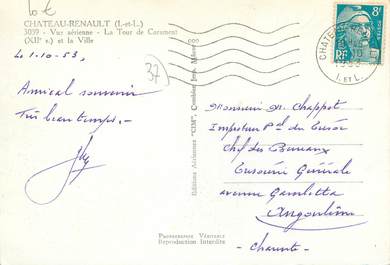 10 €
CHATEAU-RENAULT (I.-et-L.)
3039 - Vue aérienne - La Tour de Carament
(XIIe s.) et la Ville
Le 1-10-53,
37
Amical souvenir
Très beau temps.-
Editions Aériennes "CIM", Combier Imp. Mâcon
PHOTOGRAPHIE VÉRITABLE
Reproduction Interdite
CHATEAU
I. ET L.
8F
RF
Monsieur M. Chappot
Inspecteur Pal du Trésor
Chef des Bureaux
Trésorerie Générale
avenue Gambetta
Angoulême
Charente-